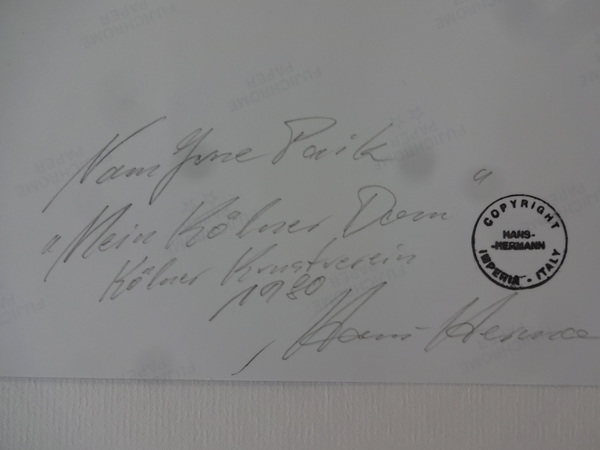 Nam June Paik
"Mein Kölner Dom"
Kölner Kunstverein
1980
Hans-Herman
COPYRIGHT
HANS-
-HERMANN
IMPERIA - ITALY
FUJICHROME
PAPER